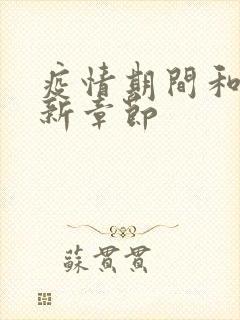 疫情期間和
新章節
蘇貫貫